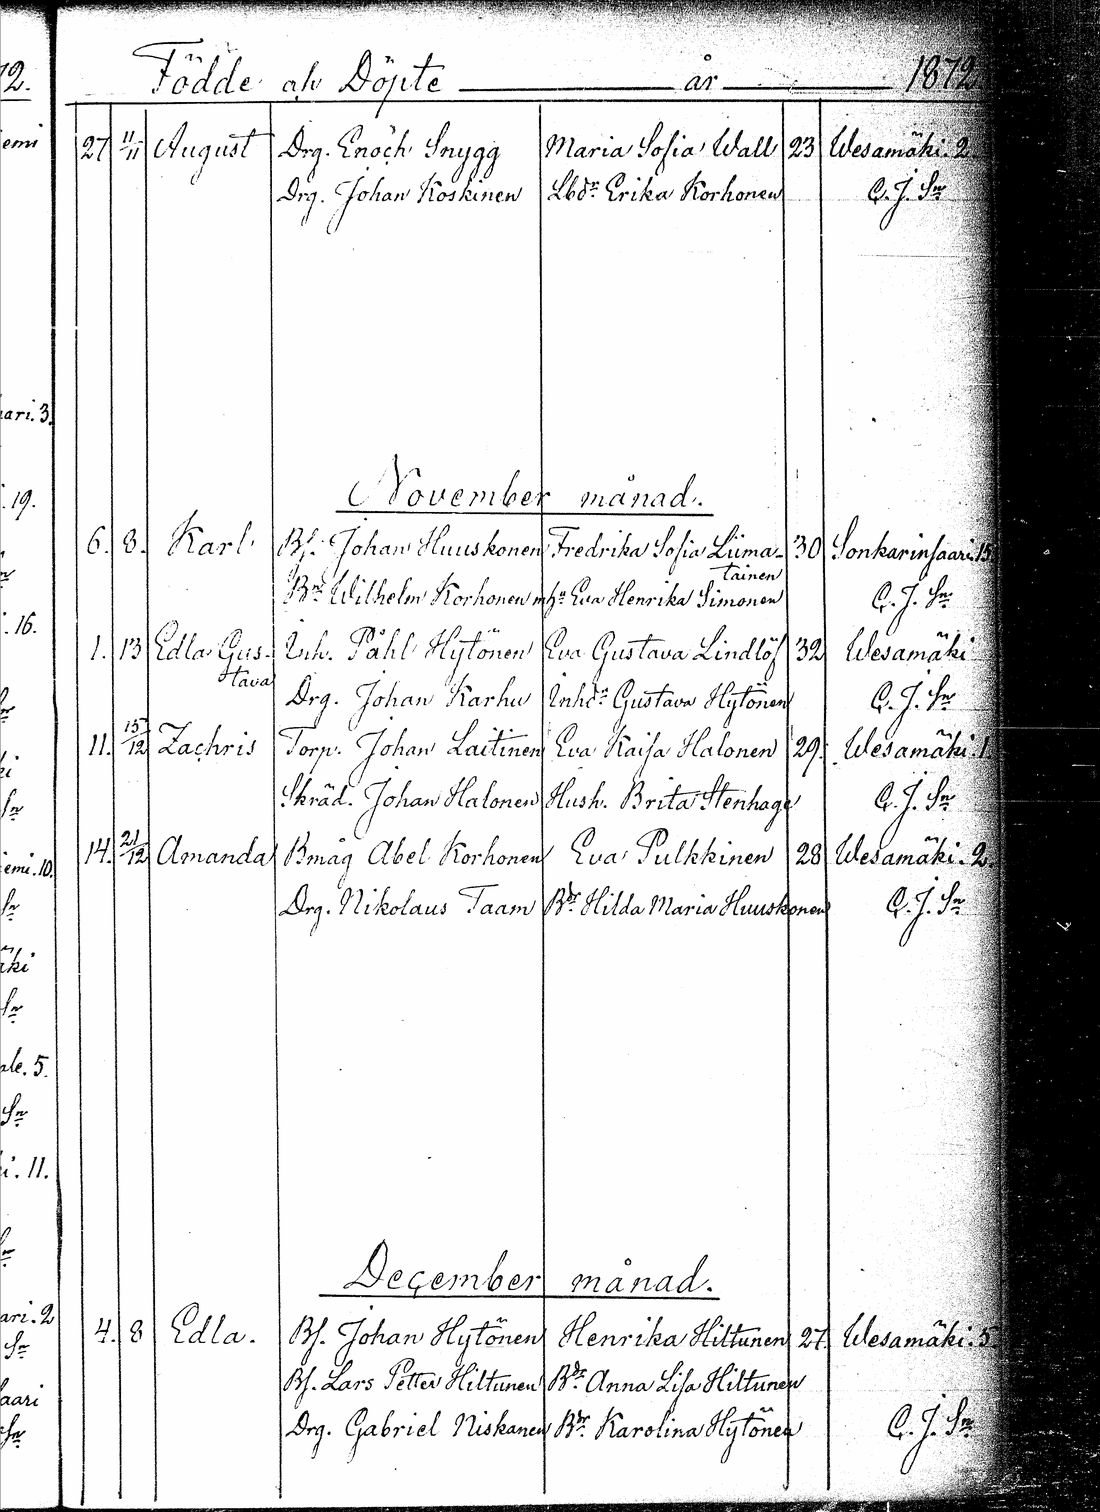 Födde och Döpte år 1872.
27 11/11 August Drg. Enoch Snygg Maria Sofia Wall 23 Wesamäki. 2.
Drg. Johan Koskinen Lbdr. Erika Korhonen C. J. Sn
November månad.
6. 8. Karl Bf. Johan Huuskonen Fredrika Sofia Liima- 30 Sonkarinsaari. 15
tainen
Bn Wilhelm Korhonen m hu Eva Henrika Simonen C. J. Sn
1. 13 Edla Gus- Inh. Påhl Hytönen Eva Gustava Lindlöf 32 Wesamäki
tava
Drg. Johan Karhu Inhdr Gustava Hytönen C. J. Sn
11. 15/12 Zachris Torp. Johan Laitinen Eva Kaisa Halonen 29. Wesamäki. 1.
Skräd. Johan Halonen Hush. Brita Stenhage C. J. Sn
14. 21/12 Amanda Bmåg Abel Korhonen Eva Pulkkinen 28 Wesamäki. 2.
Drg. Nikolaus Taam Bdr Hilda Maria Huuskonen C. J. Sn
December månad.
4. 8 Edla. Bf. Johan Hytönen Henrika Hiltunen 27. Wesamäki. 5
Bf. Lars Petter Hiltunen Bdr Anna Lisa Hiltunen
Drg. Gabriel Niskanen Bdr Karolina Hytönen C. J. Sn